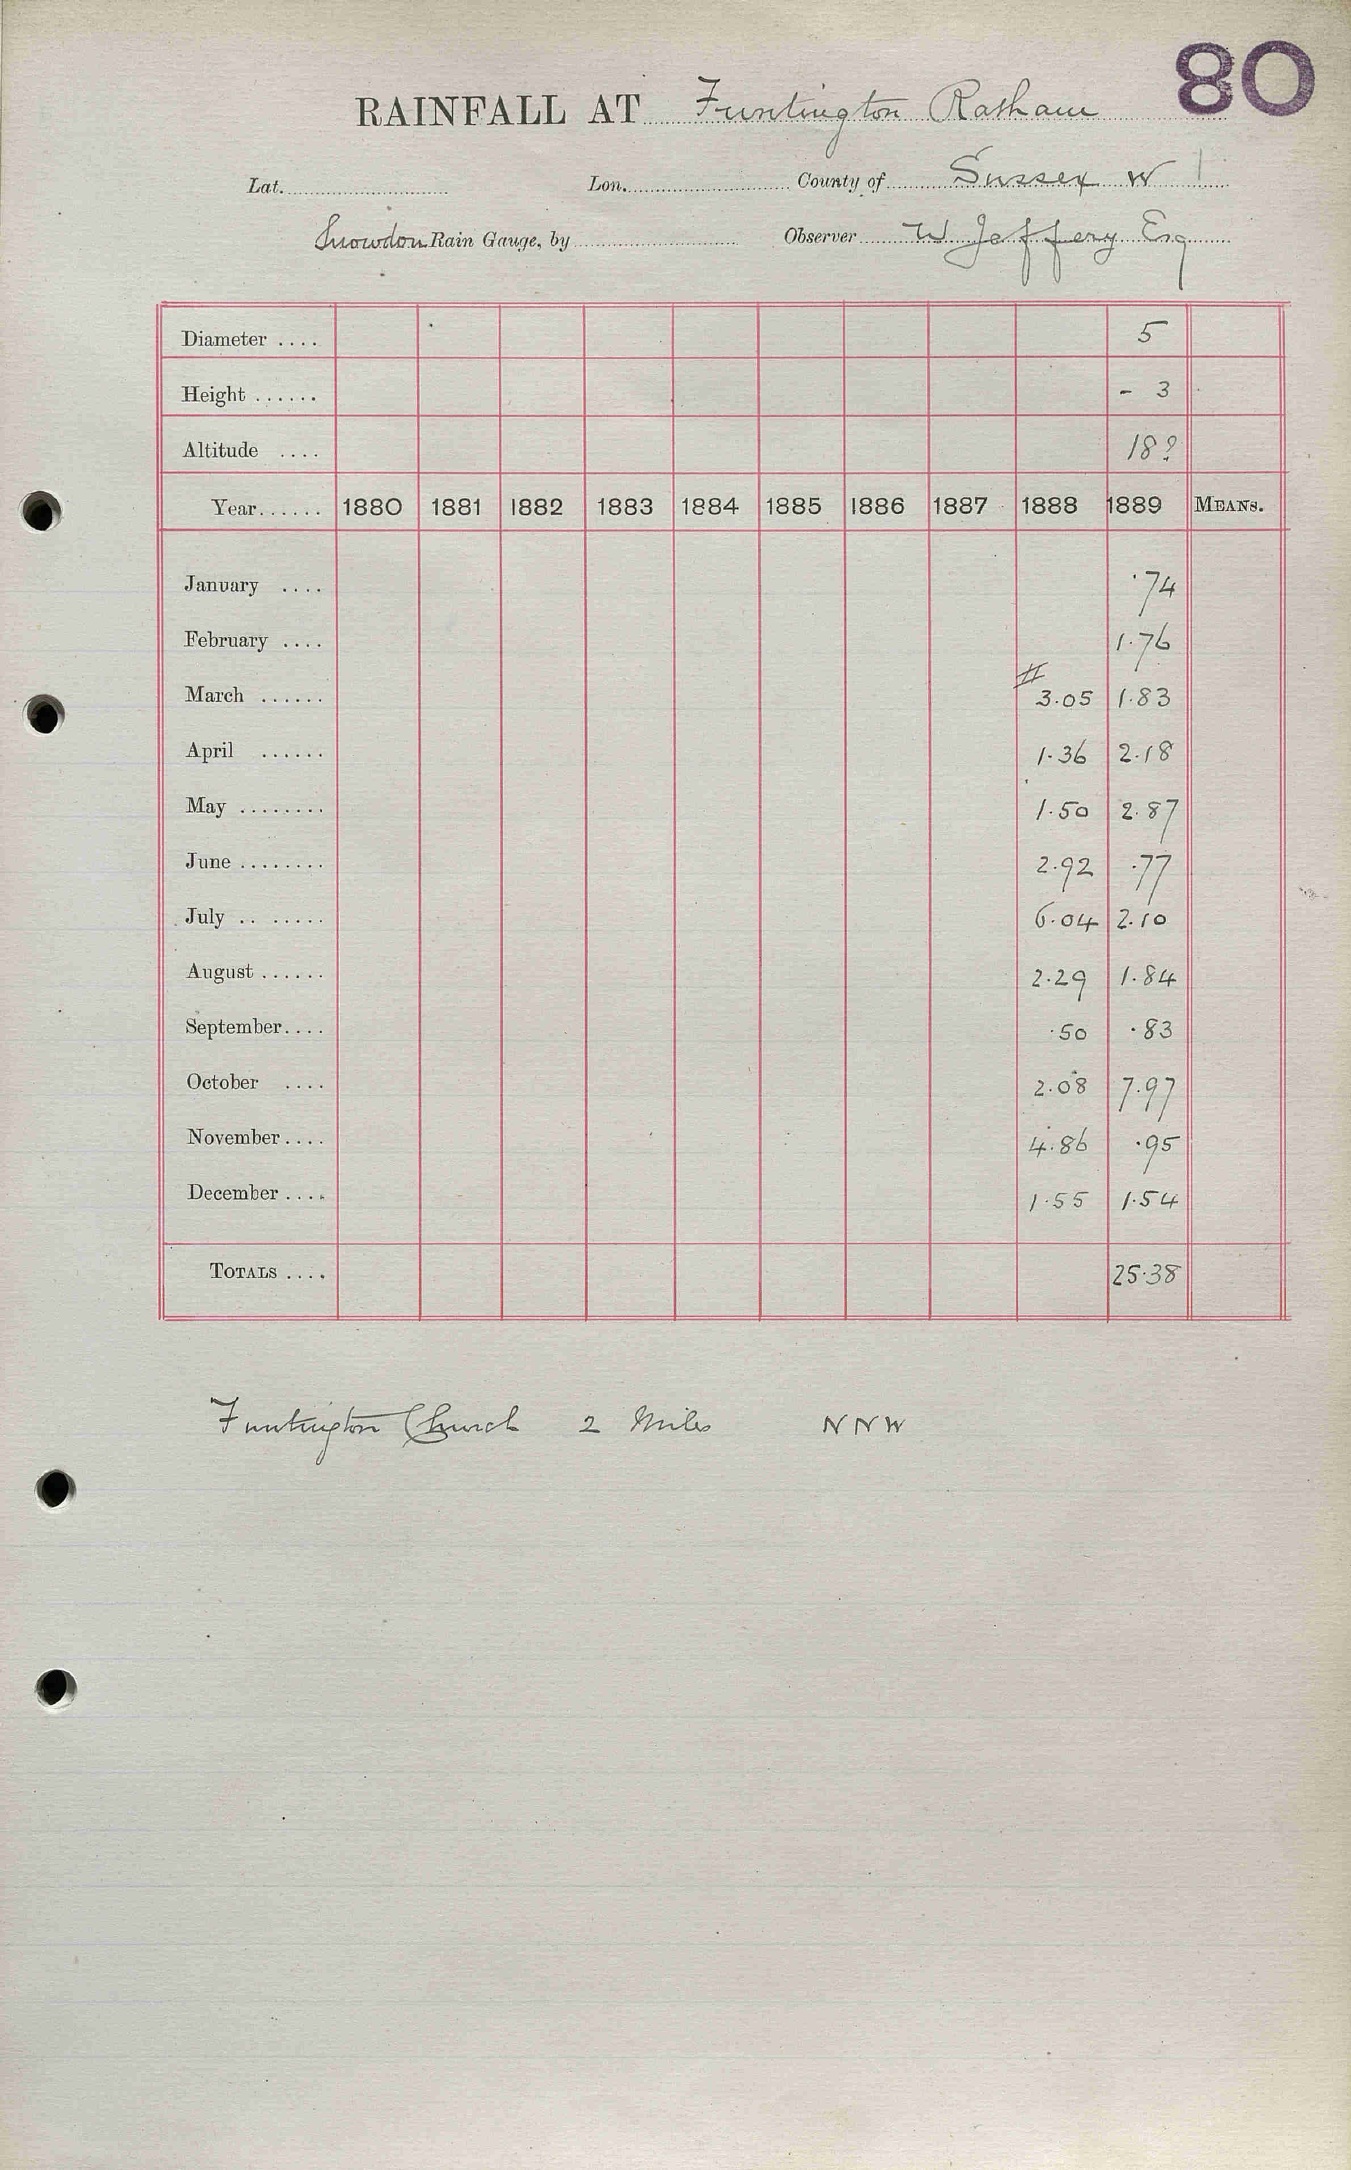 80
RAINFALL AT Funtington Ratham
Lat. Lon. County of Sussex W
Snowdon Rain Gauge, by Observer W Jeffery Esq
Diameter .... 5
Height ...... - 3
Altitude .... 18?
Year...... 1880 1881 1882 1883 1884 1885 1886 1887 1888 1889 MEANS.
January .... ·74
February .... 1.76
March ...... # 3.05 1.83
April ...... 1.36 2.18
May ........ 1.50 2.87
June ........ 2.92 .77
July .. ..... 6.04 2.10
August ...... 2.29 1.84
September.... .50 .83
October .... 2.08 7.97
November.... 4.86 .95
December .... 1.55 1.54
TOTALS .... 25.38
Funtington Church 2 Miles NNW